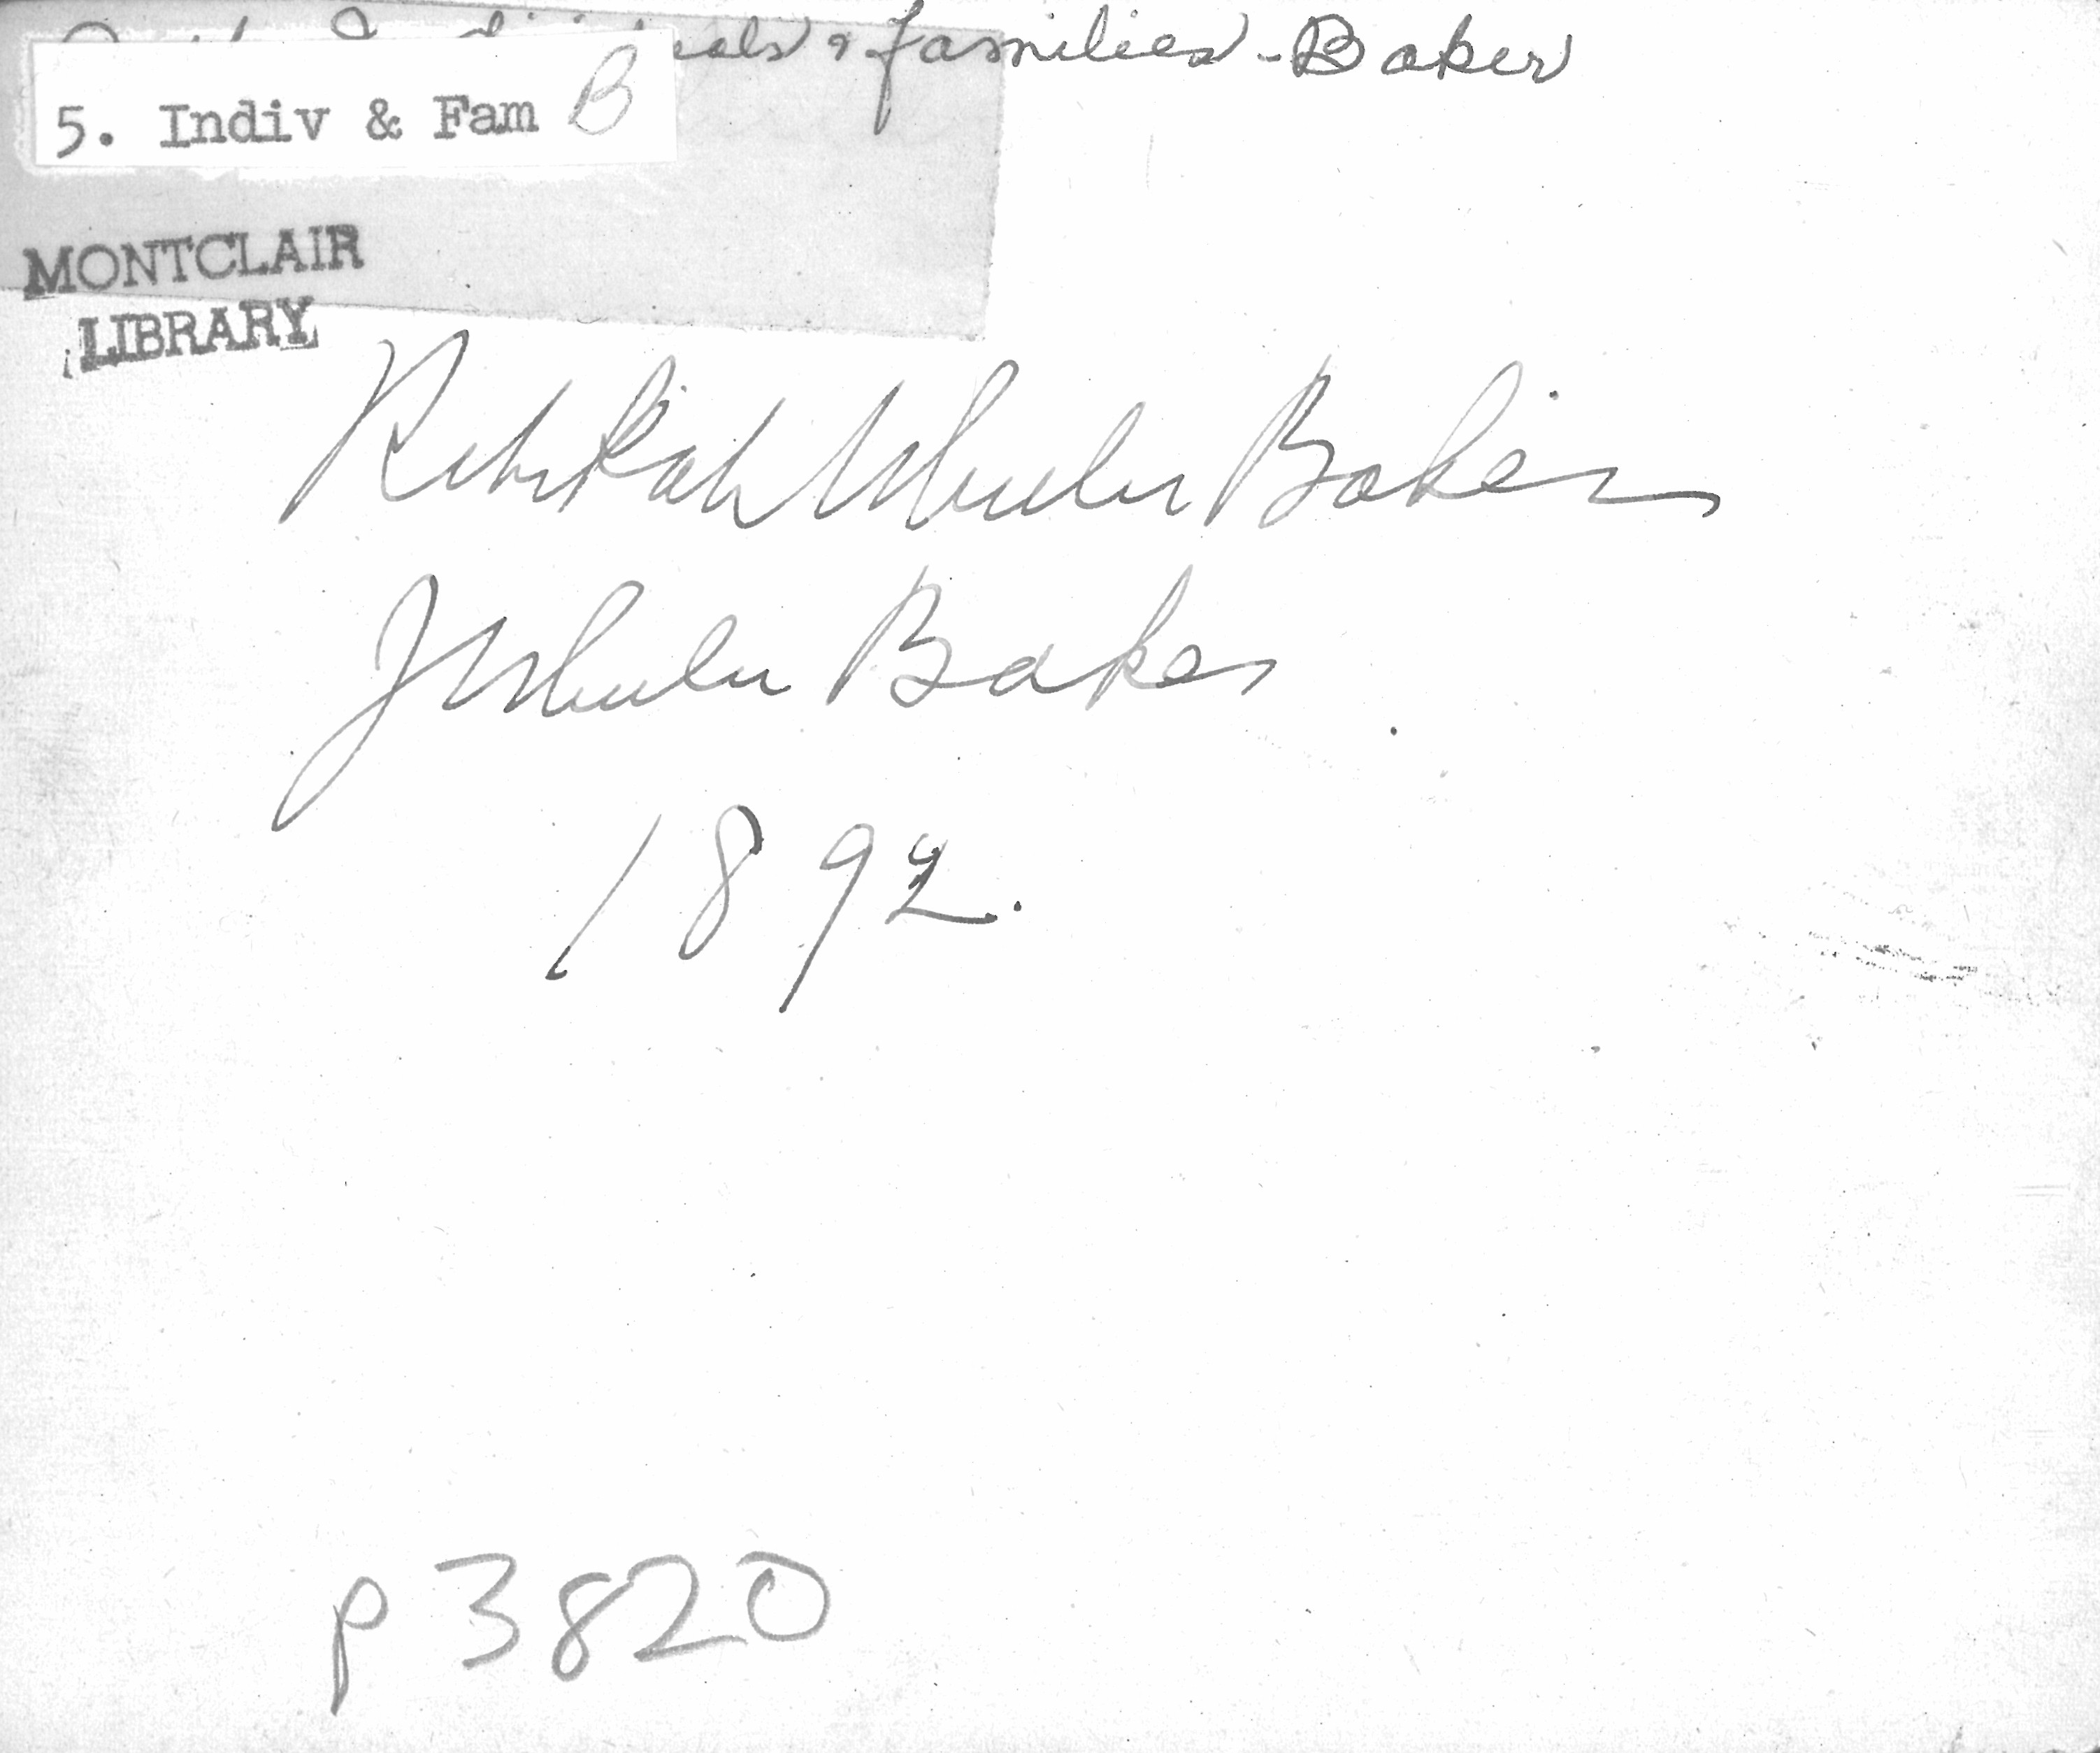 & families - Baker
5. Indiv & Fam B
MONTCLAIR
LIBRARY
Rebekah Wheeler Baker
J Wheeler Baker
1892.
p3820